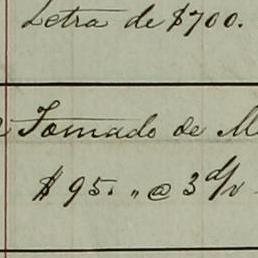 Letra de $700.
Tomado de M
$95. " @ 3 d/v